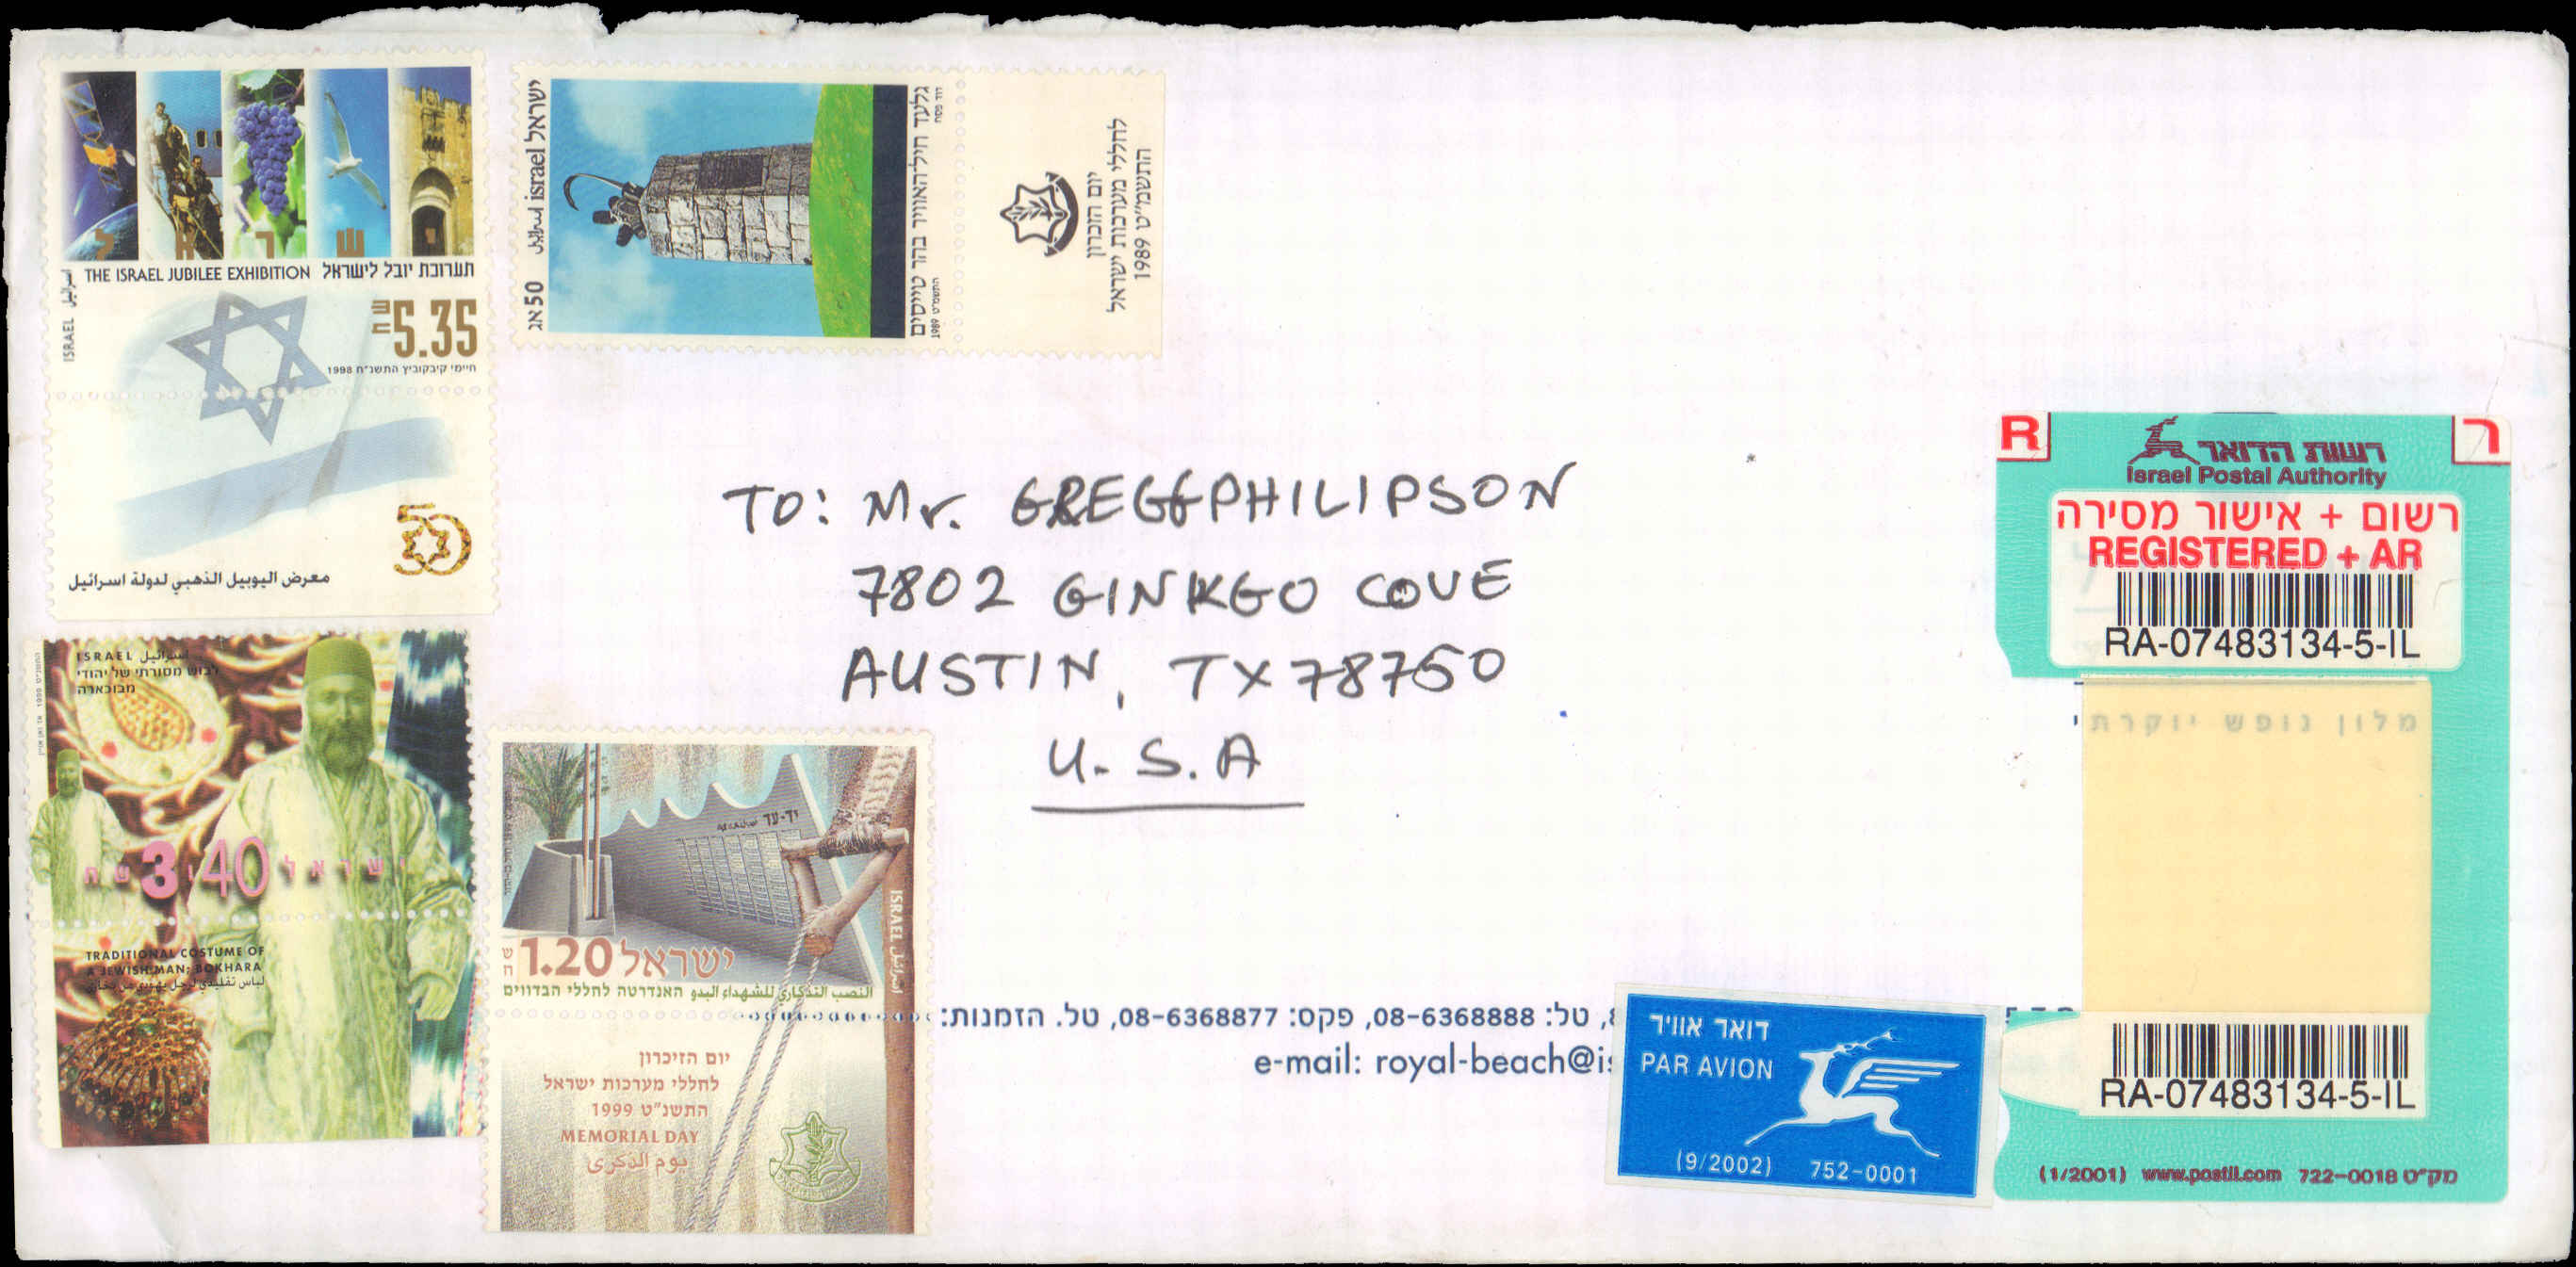 י ש ר א ל
THE ISRAEL JUBILEE EXHIBITION תערוכת יובל לישראל
ISRAEL اسرائيل
5.35 ש״ח
חיימי קיבקוביץ התשנ״ח 1998
50
معرض اليوبيل الذهبي لدولة اسرائيل
אג 50 اسرائيل israel ישראל
גלעד חיל-האוויר בהר טייסים
התשמ״ט 1989
יום הזכרון
לחללי מערכות ישראל
התשמ״ט 1989
ISRAEL اسرائيل
לבוש מסורתי של יהודי
מבוכארה
ישראל 3.40 ש ח
TRADITIONAL COSTUME OF
A JEWISH MAN; BOKHARA
لباس تقليدي لرجل يهودي من بخارى
יד-עד
ISRAEL اسرائيل
ש ח 1.20 ישראל
האנדרטה לחללי הבדווים النصب التذكاري للشهداء البدو
יום הזיכרון
לחללי מערכות ישראל
התשנ״ט 1999
MEMORIAL DAY
يوم الذكرى
TO: Mr. GREGG PHILIPSON
7802 GINKGO COVE
AUSTIN, TX 78750
U.S.A
R ר
רשות הדואר
Israel Postal Authority
רשום + אישור מסירה
REGISTERED + AR
RA-07483134-5-IL
מלון נופש יוקרתי
RA-07483134-5-IL
(1/2001) www.postil.com מק״ט 722-0018
8, טל: 08-6368888, פקס: 08-6368877, טל. הזמנות:
e-mail: royal-beach@is
דואר אוויר
PAR AVION
(9/2002) 752-0001